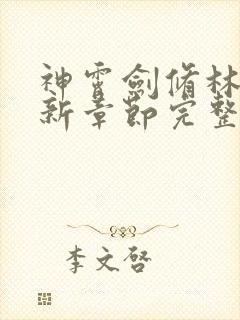 神霄劍脩林
新章節完整
李文啓